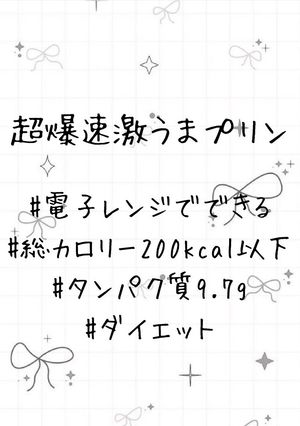 超爆速激うまプリン
#電子レンジでできる
#総カロリー200kcal以下
#タンパク質9.7g
#ダイエット